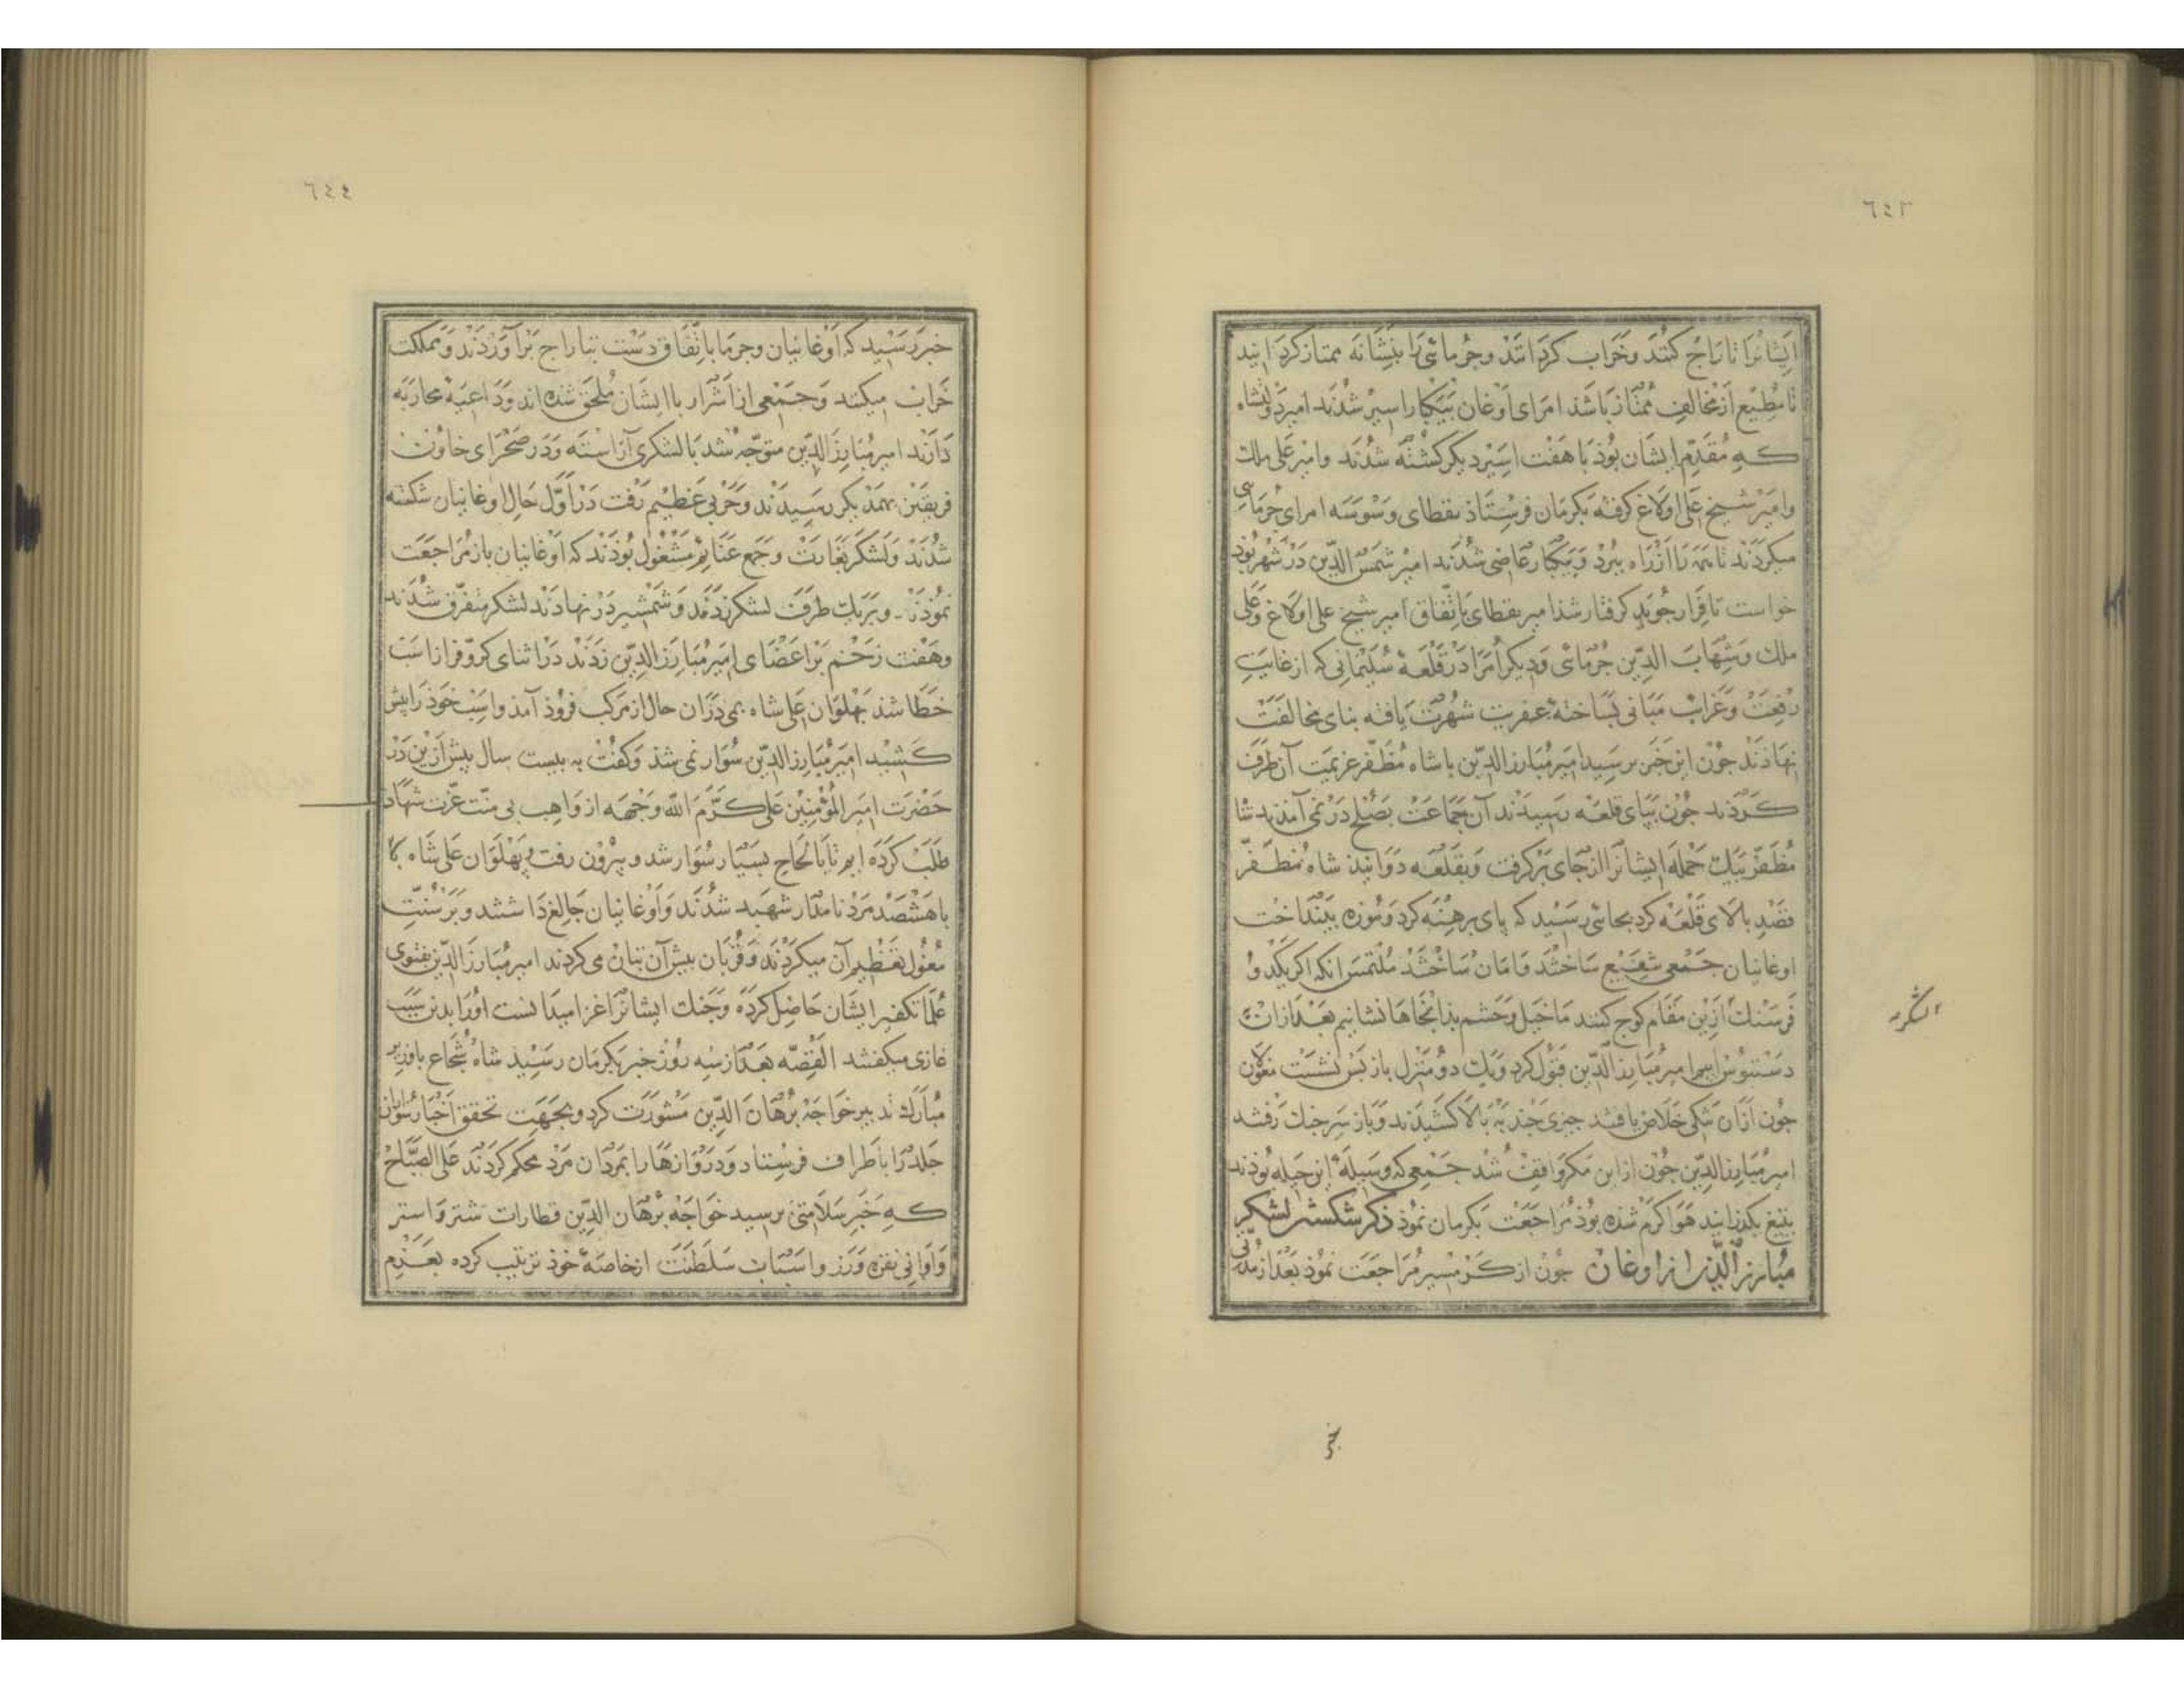 ٦٤٣
ایشانرا تاراج کنند و خراب کردانند و جرمائی را بنشانه ممتاز کردانید
تا مطیع از مخالف ممتاز باشد امرای اوغان بیکبار اسیر شدند امیر دولتشاه
که مقدم ایشان بوذ با هفت اسیر دیکر کشته شدند وامیر علی ملک
وامیر شیخ علی اولاغ کرفته بکرمان فرستاذ نقطای وسوسه امرای جرمایی
میکردند تا همه را از راه ببرد و بیکبار عاصی شدند امیر شمس الدین در شهر بوذ
خواست تا قرار جوید کرفتار شذ امیر نقطای باتفاق امیر شیخ علی اولاغ وعلی
ملک وشهاب الدین جرمائی ودیکر امرا در قلعهٔ سلیمانی که از غایت
رفعت وغرابت مبانی بساختهٔ عفریت شهرت یافته بنای مخالفت
نهاذند جون این خبر برسید امیر مبارز الدین باشاه مظفر عزیمت آن طرف
کردند جون بپای قلعه رسیدند آن جماعت بصلح در نمی آمدند شا
مظفر بیک حمله ایشانرا از جای برکرفت وبقلعه دوانید شاه مظفر
قصد بالای قلعه کرد بجائی رسید که پای برهنه کرد وموزه بینداخت
اوغانیان جمعی شفیع ساختند وامان ساختند ملتمس انکه اکر یکدو
فرسنک ازین مقام کوج کنند ما خیل وحشم بذانجاها نشانیم بعد ازان
دستبوس اییم امیر مبارز الدین قبول کرد ویک دو منزل باز پس نشست مغولان
جون ازان تنکی خلاص یافتند جیزی جند به بالا کشیدند وباز سر جنک رفتند
امیر مبارز الدین جون از این مکر واقف شد جمعی که وسیلهٔ این حیله بوذند
بتیغ بکذرانید هوا کرم شذه بوذ مراجعت بکرمان نموذ ذکر شکستن لشکر
مبارز الدین از اوغان جون از کرمسیر مراجعت نموذ بعد از مدتی
خبر
٦٤٤
خبر رسید که اوغانیان وجرما باتفاق دست بتاراج برآوردند ومملکت
خراب میکنند وجمعی از اشرار باایشان ملحق شده اند وداعیهٔ محاربه
دارند امیر مبارز الدین متوجه شد بالشکری آراسته ودر صحرای خاون
فریقین بهمدیکر رسیدند وحربی عظیم رفت در اول حال اوغانیان شکسته
شدند ولشکر بغارت وجمع غنایم مشغول بوذند که اوغانیان باز مراجعت
نموذند وبریک طرف لشکر زدند وشمشیر در نهادند لشکر متفرق شدند
وهفت زخم بر اعضای امیر مبارز الدین زدند در اثنای کر وفر از است
خطا شذ پهلوان علی شاه بمی دران حال از مرکب فروذ آمذ واسب خوذ را پیش
کشید امیر مبارز الدین سوار نمی شذ وکفت به بیست سال پیش ازین در
حضرت امیر المؤمنین علی کرم الله وجهه از واهب بی منت عزت شهادت
طلب کرده ایم تا بالحاح بسیار سوار شد وبیرون رفت وپهلوان علی شاه
باهشصد مرد نامدار شهید شدند واوغانیان جالغ داشتند وبر سنت
مغول تعظیم آن میکردند وقربان پیش آن بتان می کردند امیر مبارز الدین بفتوی
علما تکفیر ایشان حاصل کرده وجنک ایشانرا غزا میدانست اورا بدین سبب
غازی میکفتند القصه بعد از سه روز خبر بکرمان رسید شاه شجاع باوزیر
مبارک تدبیر خواجه برهان الدین مشورت کرد وبجهت تحقق اخبار
جلد را باطراف فرستاد ودروازها را بمردان مرد محکم کردند علی الصباح
که خبر سلامتی برسید خواجه برهان الدین قطارات شتر واستر
واوانی نقره وزر واسباب سلطنت از خاصهٔ خوذ ترتیب کرده بعد